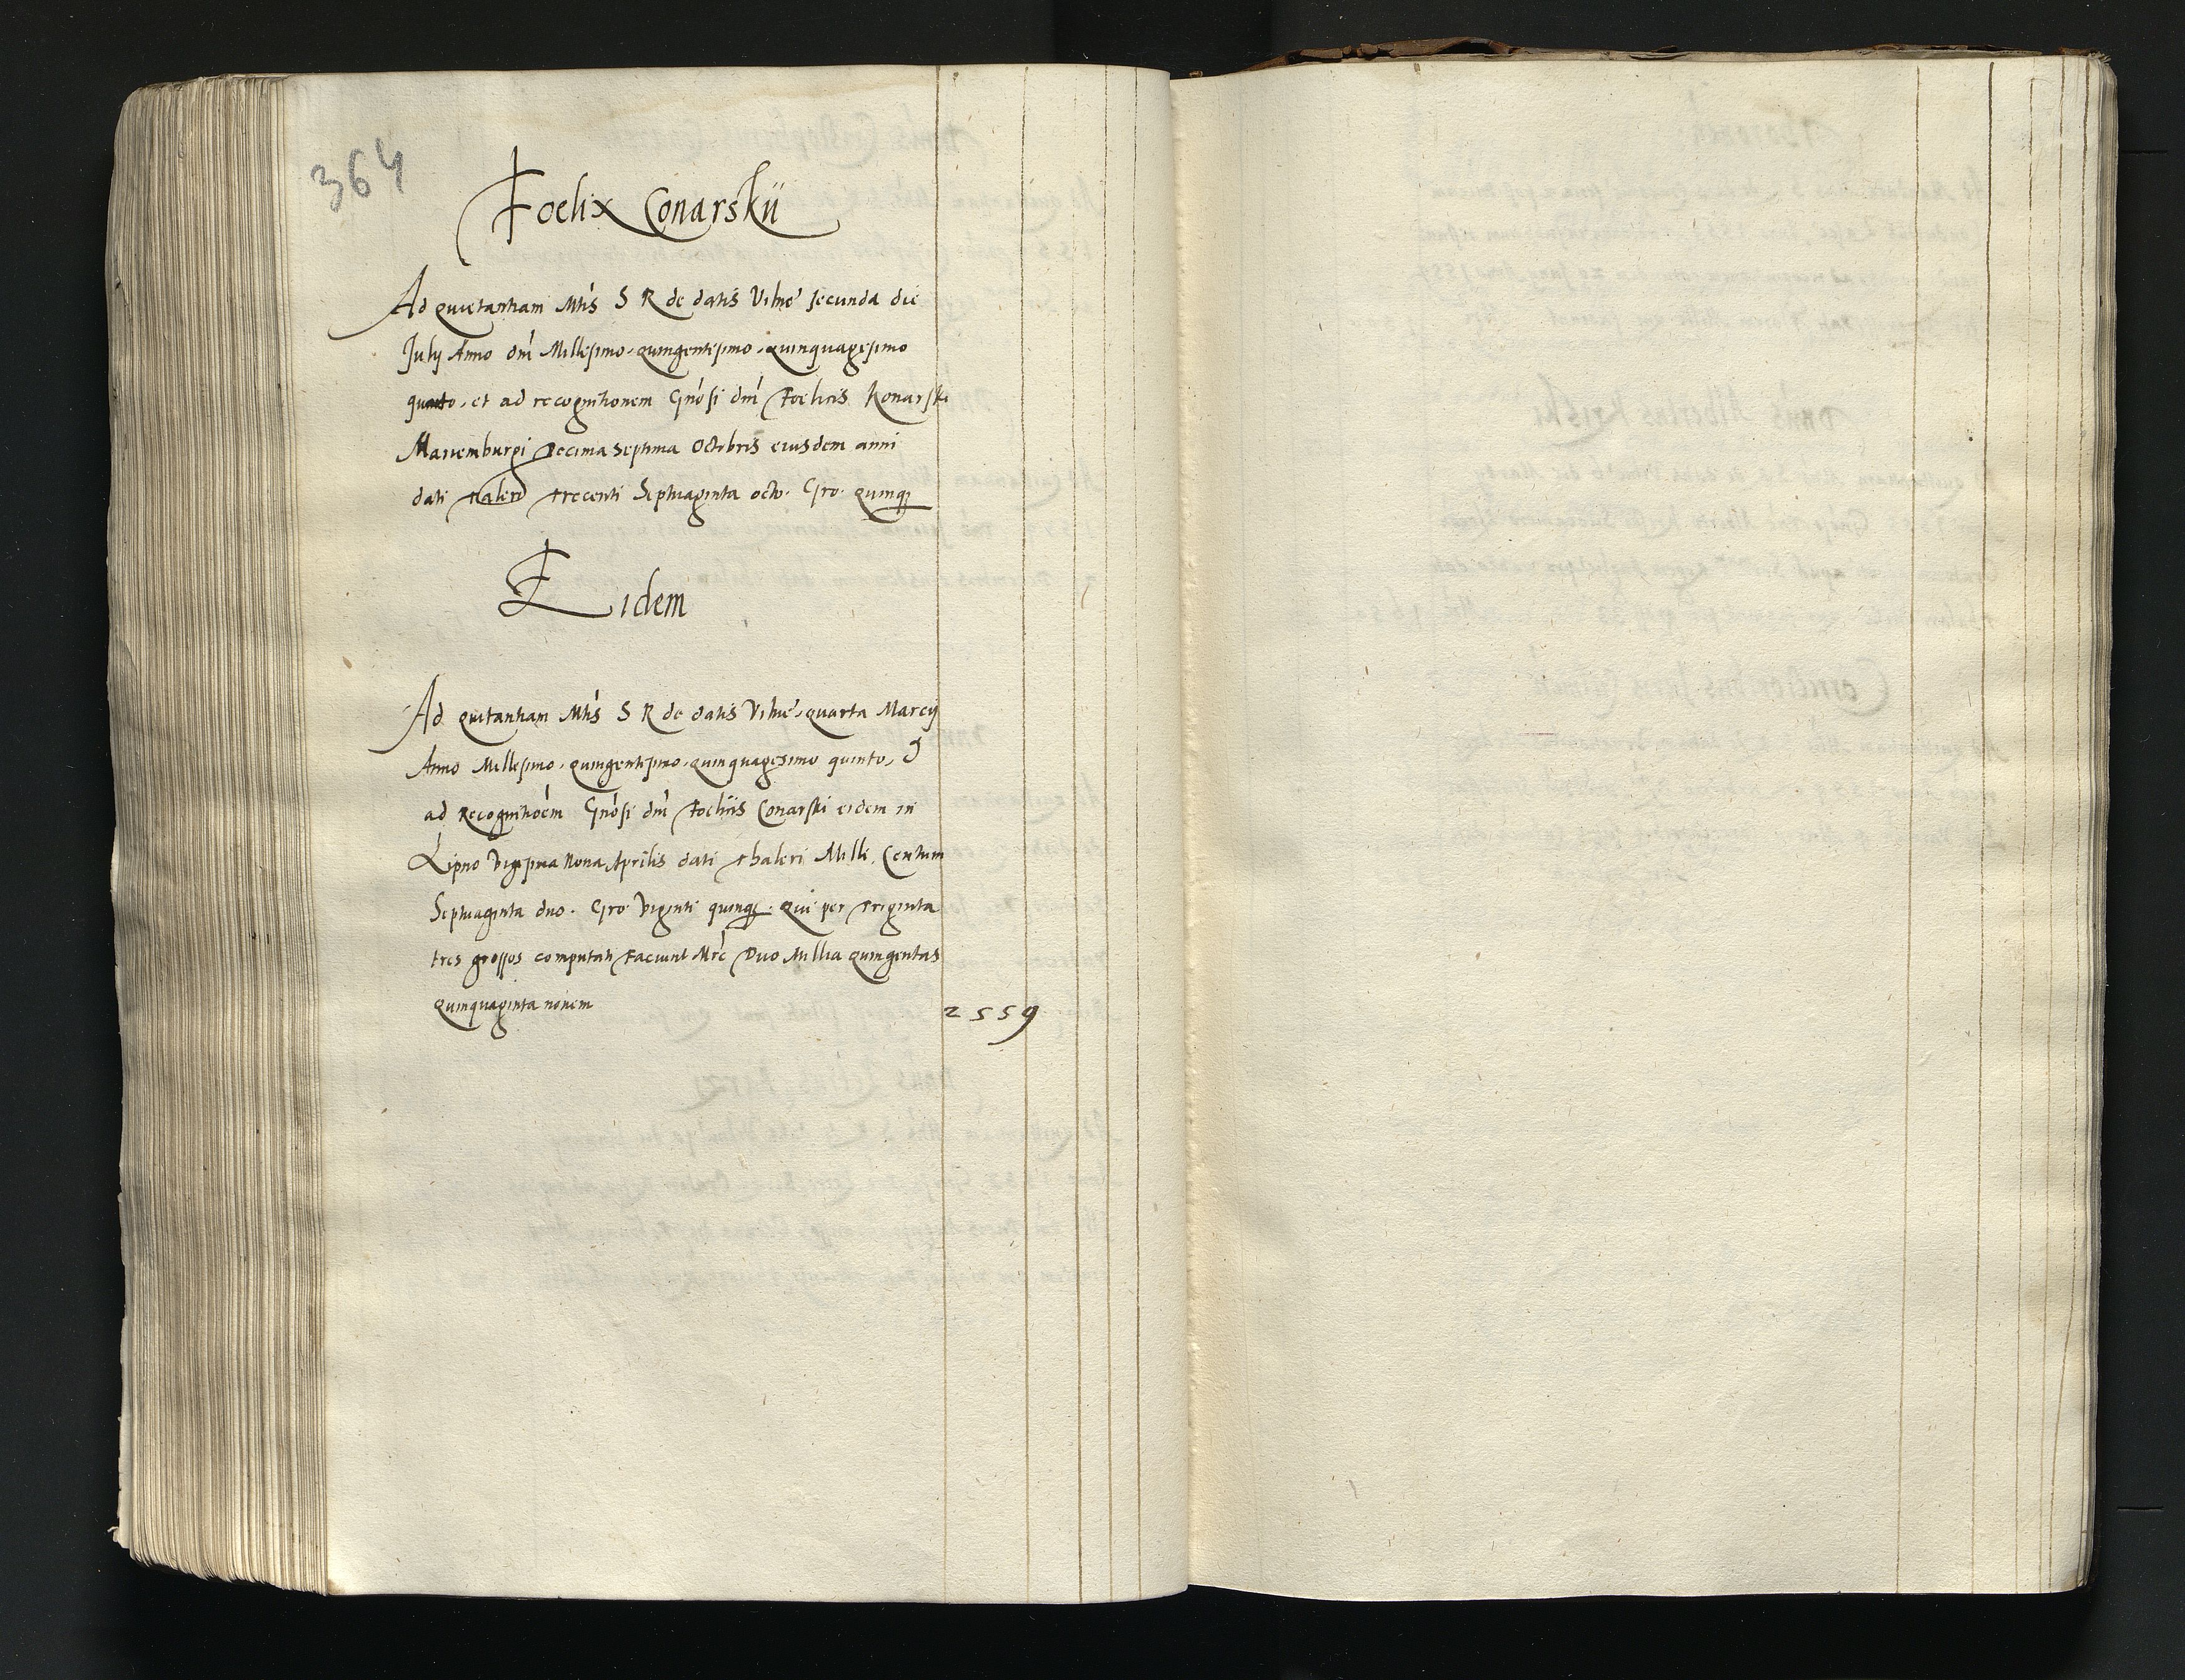 364
Foelix Conarskii
Ad quietantiam Mtis S R de datis Vilne secunda die
July Anno dni Millesimo quingentesimo quinquagesimo
quarto, et ad recognitionem Gnosi dni Foelicis Konarski
Mariemburgi Decima septima Octobris eiusdem anni
dati taleri trecenti Septuaginta octo. Gro. quinq
Eidem
Ad quitantiam Mtis S R de datis Vilne quarta Marcij
Anno Millesimo quingentesimo quinquagesimo quinto, &
ad Recognitioem Gnosi dni Foelicis Conarski eidem in
Lipno vigesima Nona Aprilis dati thaleri Mille Centum
Septuaginta duo. Gro. Viginti quinq. qui per triginta
tres grossos computati Faciunt Mrc Duo Millia quingentas
quinquaginta novem 2559